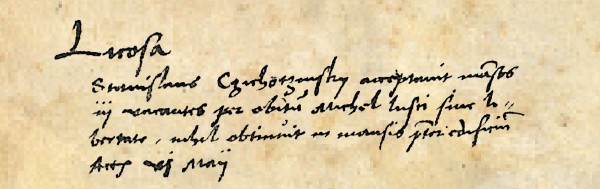 Licosa
Stanislaus Czichotzinsky acceptavit mansos
iij vacantes per obitū Michel lusci sine li=
bertate, nihil obtinuit in mansis preter edificiū
Actū vj Maij